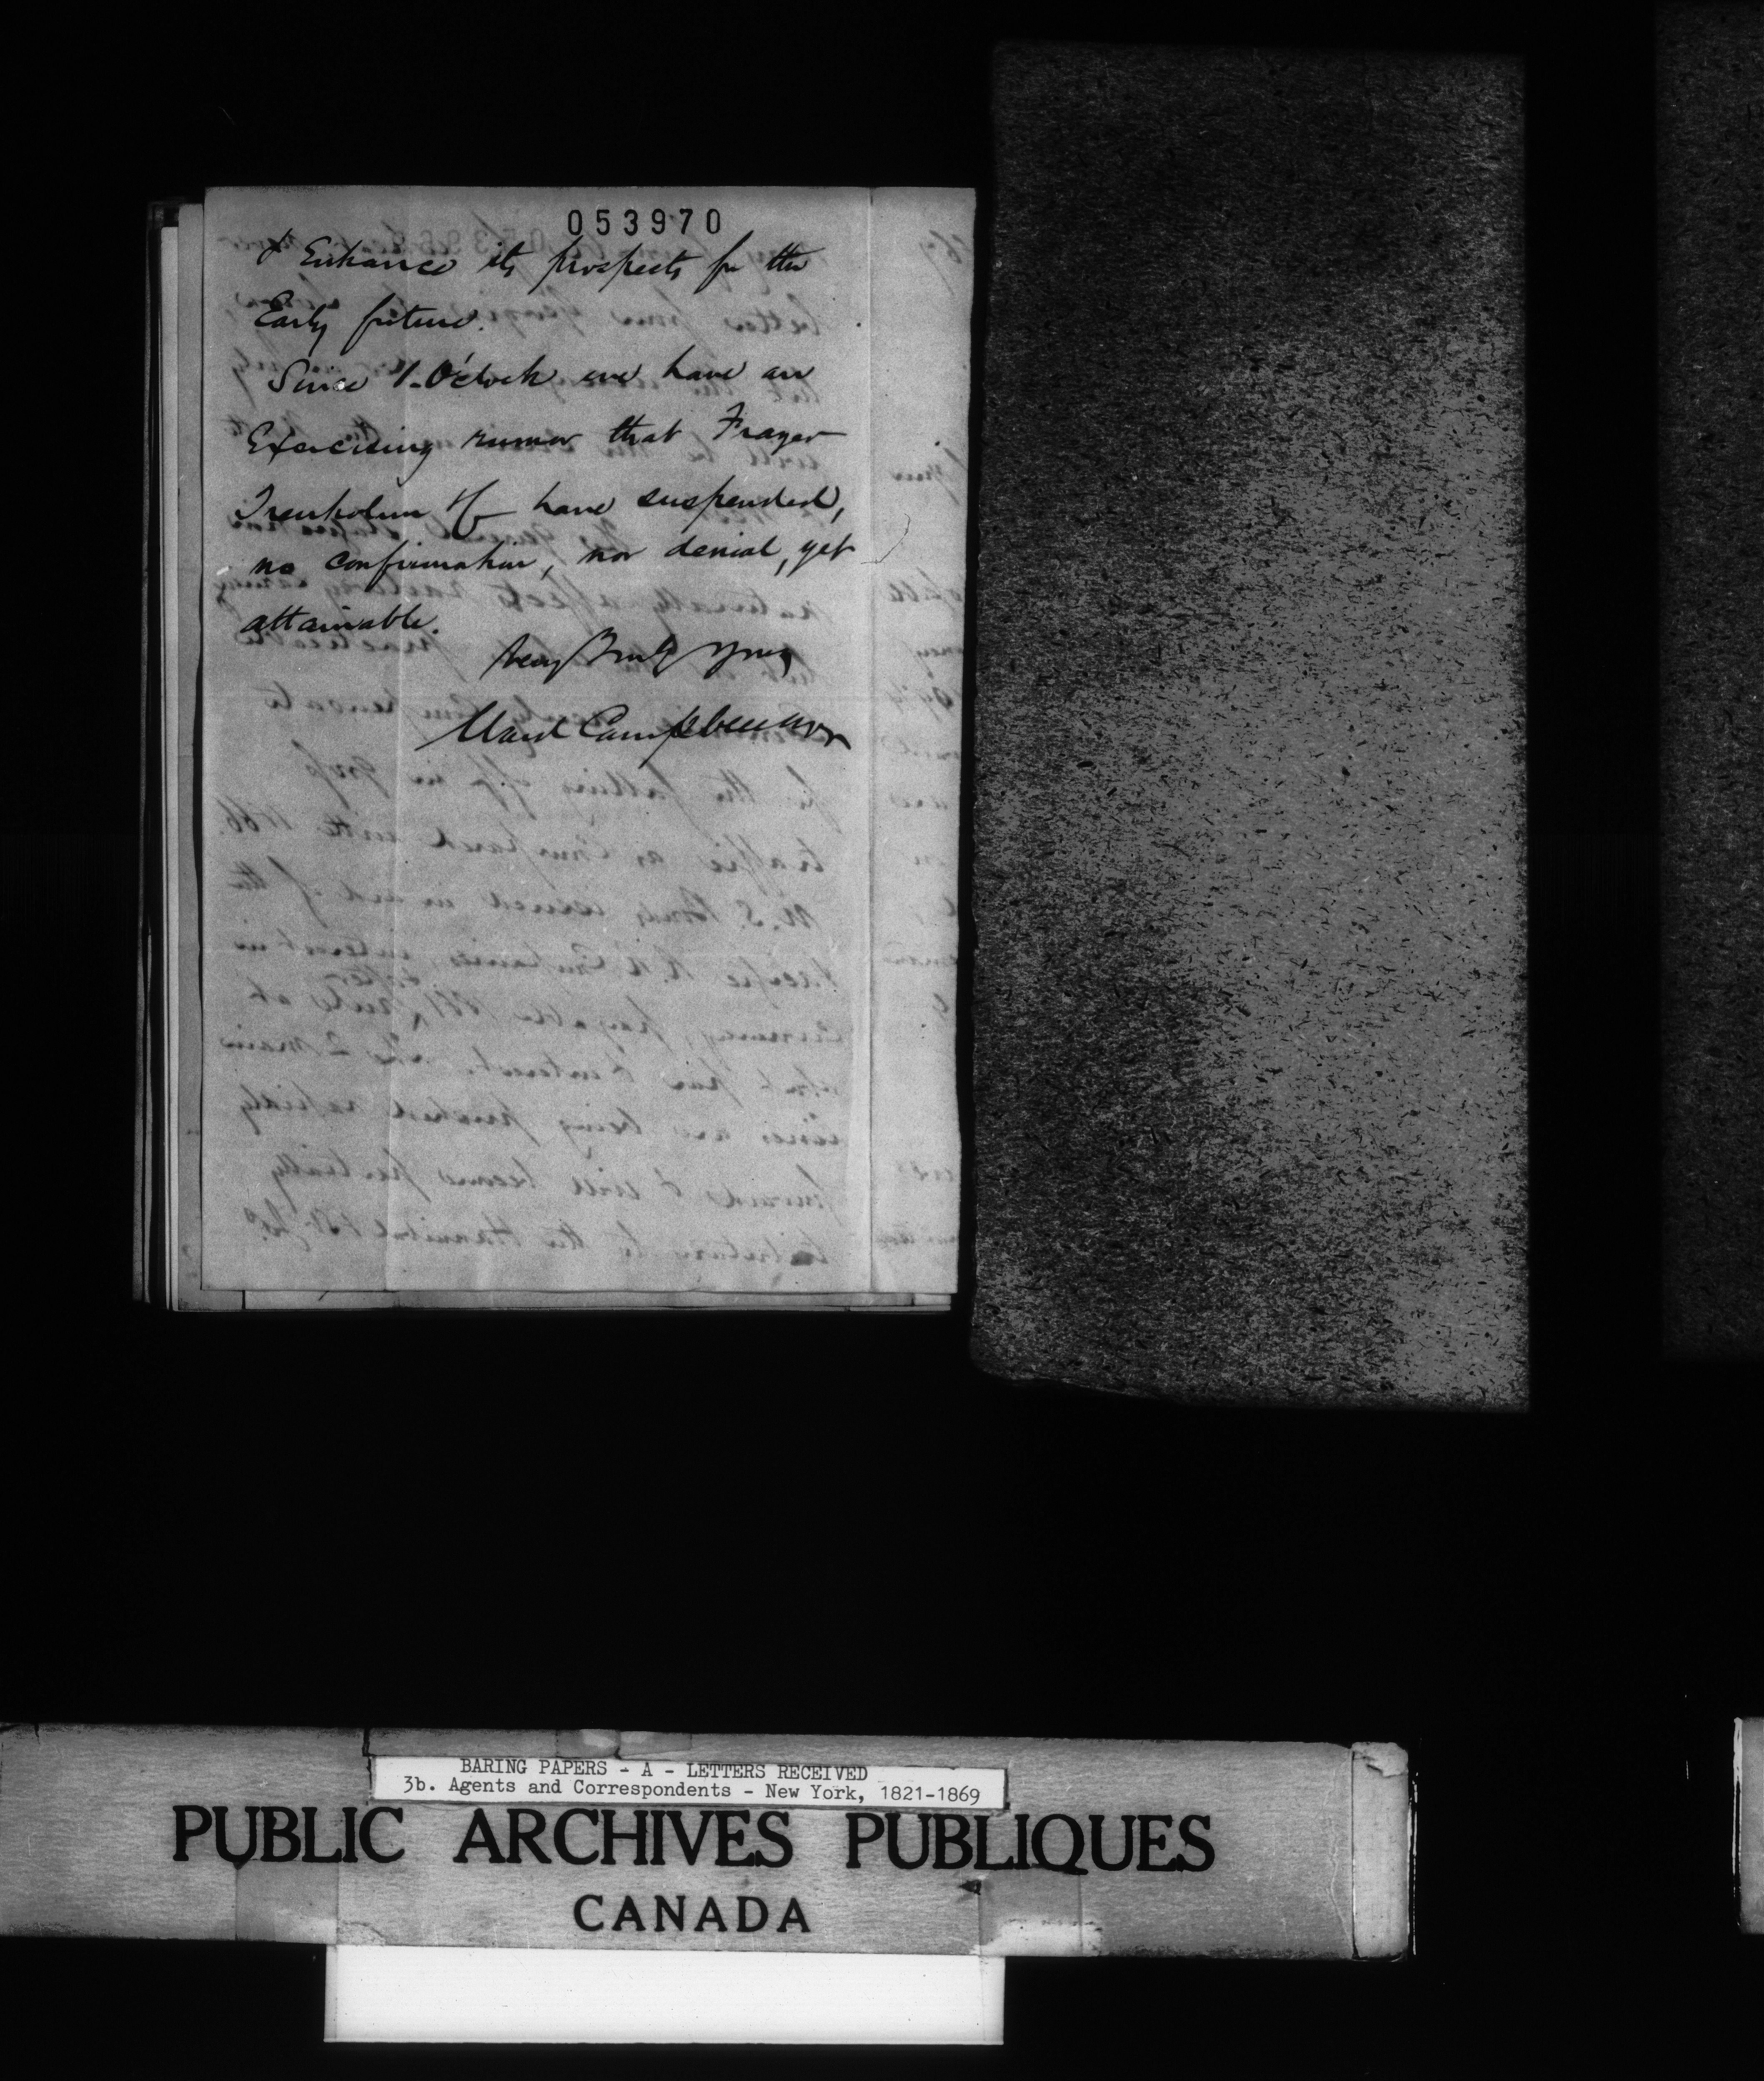 053970
& Enhance its prospects for the
Early future.
Since 1. O'clock we have an
Exercising rumor that Frazer
Trenholm & Co have suspended,
no confirmation, nor denial, yet
attainable.
Very Truly Yours
Ward Campbell & Co
BARING PAPERS - A - LETTERS RECEIVED
3b. Agents and Correspondents - New York, 1821-1869
PUBLIC ARCHIVES PUBLIQUES
CANADA